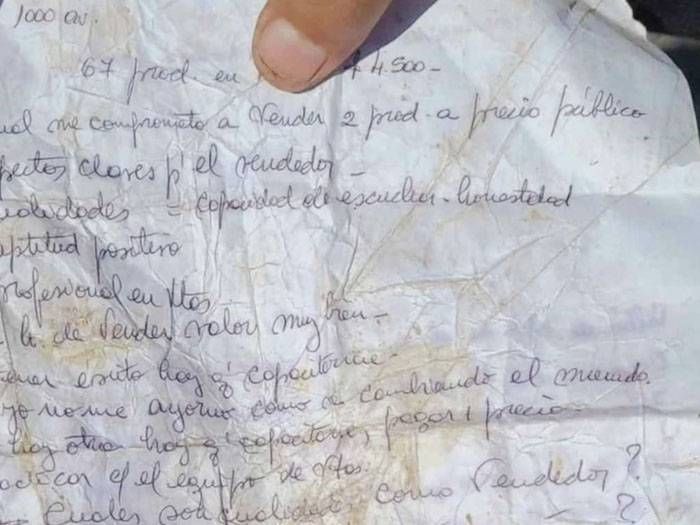 1000 au.
67 prod. en $ 4.500-
ual me comprometo a Vender 2 prod. a precio público
pectos claves p' el vendedor -
ualidades = capacidad de escuchar - honestidad
aptitud positiva
rofesional en Vtas
h. de Vender valor muy bien -
ener éxito hay q' capacitarse -
yo no me ayorno como va cambiando el mercado.
hay otra hay q' capacitarse, pagar 1 precio -
el equipo de Vtas.
- Cuales son cualidades como Vendedor ?